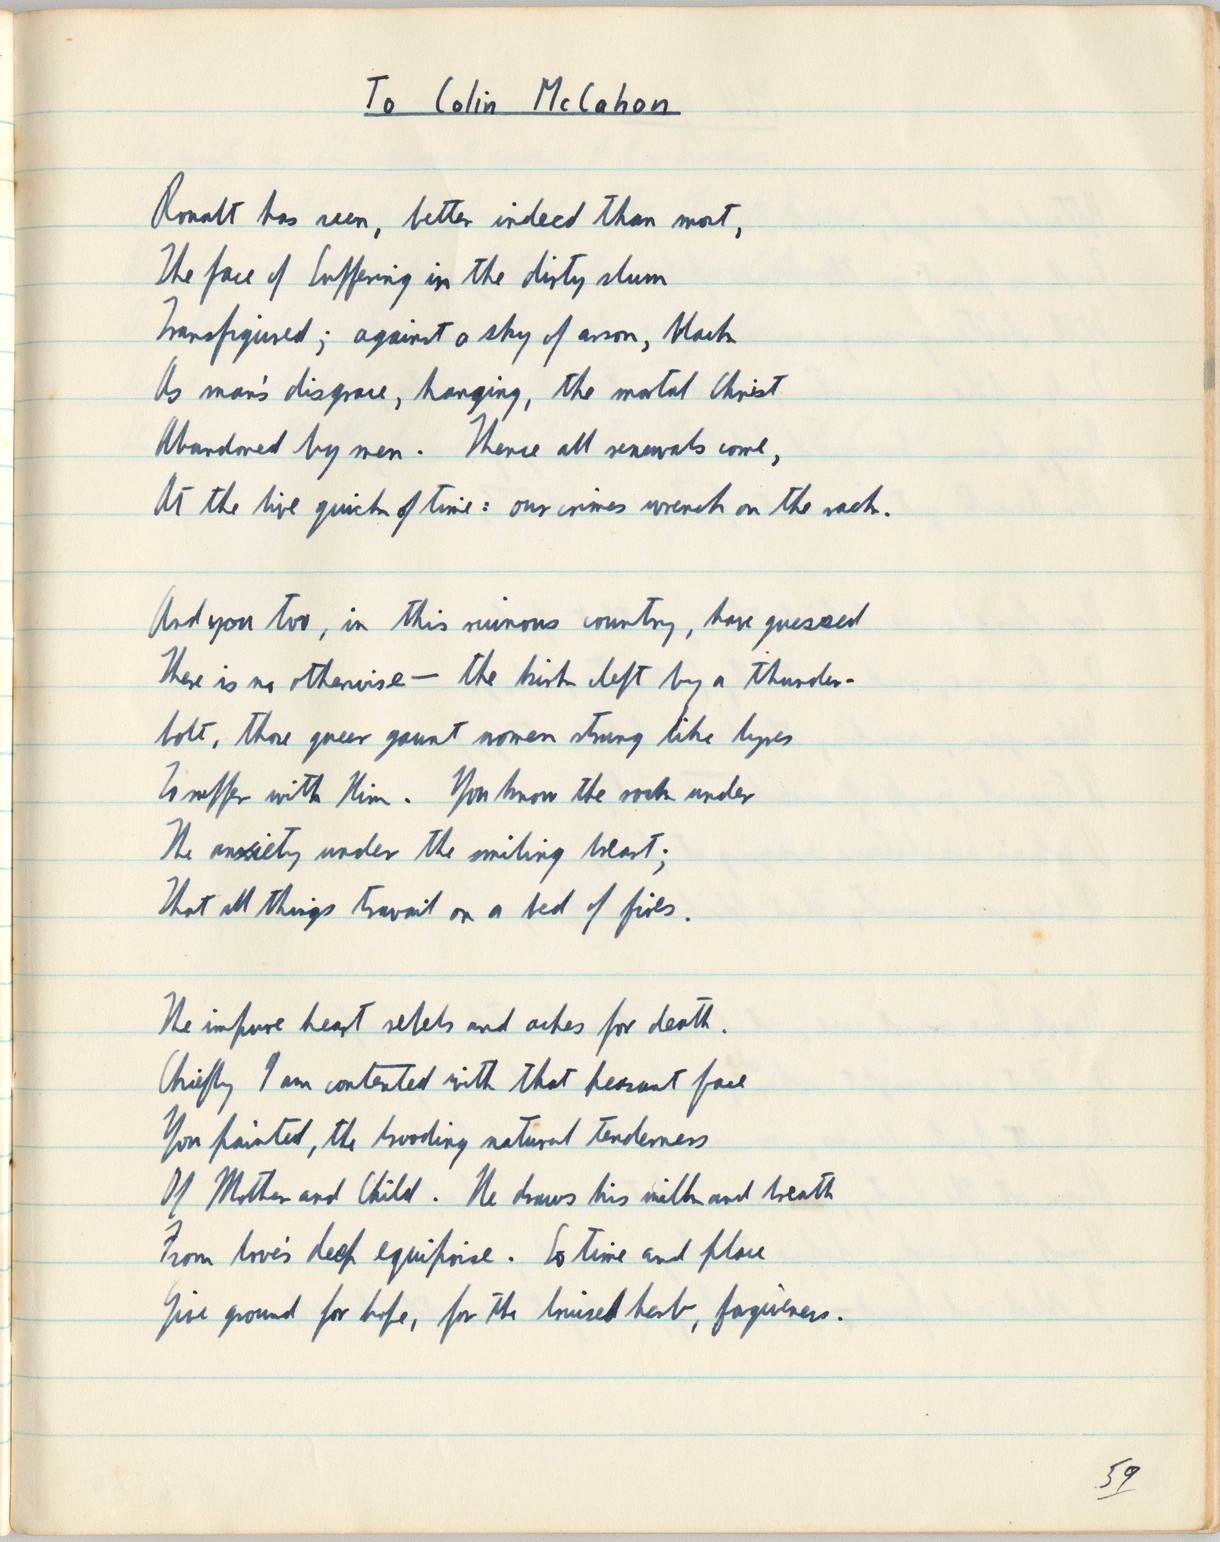 To Colin McCahon
Rouault has seen, better indeed than most,
The face of Suffering in the dirty slum
Transfigured; against a sky of arson, black
As man's disgrace, hanging, the mortal Christ
Abandoned by men. Thence all renewals come,
At the live quick of time: our crimes wrench on the rack.
And you too, in this ruinous country, have guessed
There is no otherwise — the kirk cleft by a thunder-
bolt, those queer gaunt women strung like lyres
To suffer with Him. You know the rock under
The anxiety under the smiling breast;
That all things travail on a bed of fires.
The impure heart rebels and aches for death.
Chiefly I am contented with that peasant face
You painted, the brooding natural tenderness
Of Mother and Child. He draws his milk and breath
From love's deep equipoise. So time and place
Give ground for hope, for the bruised herb, forgiveness.
59